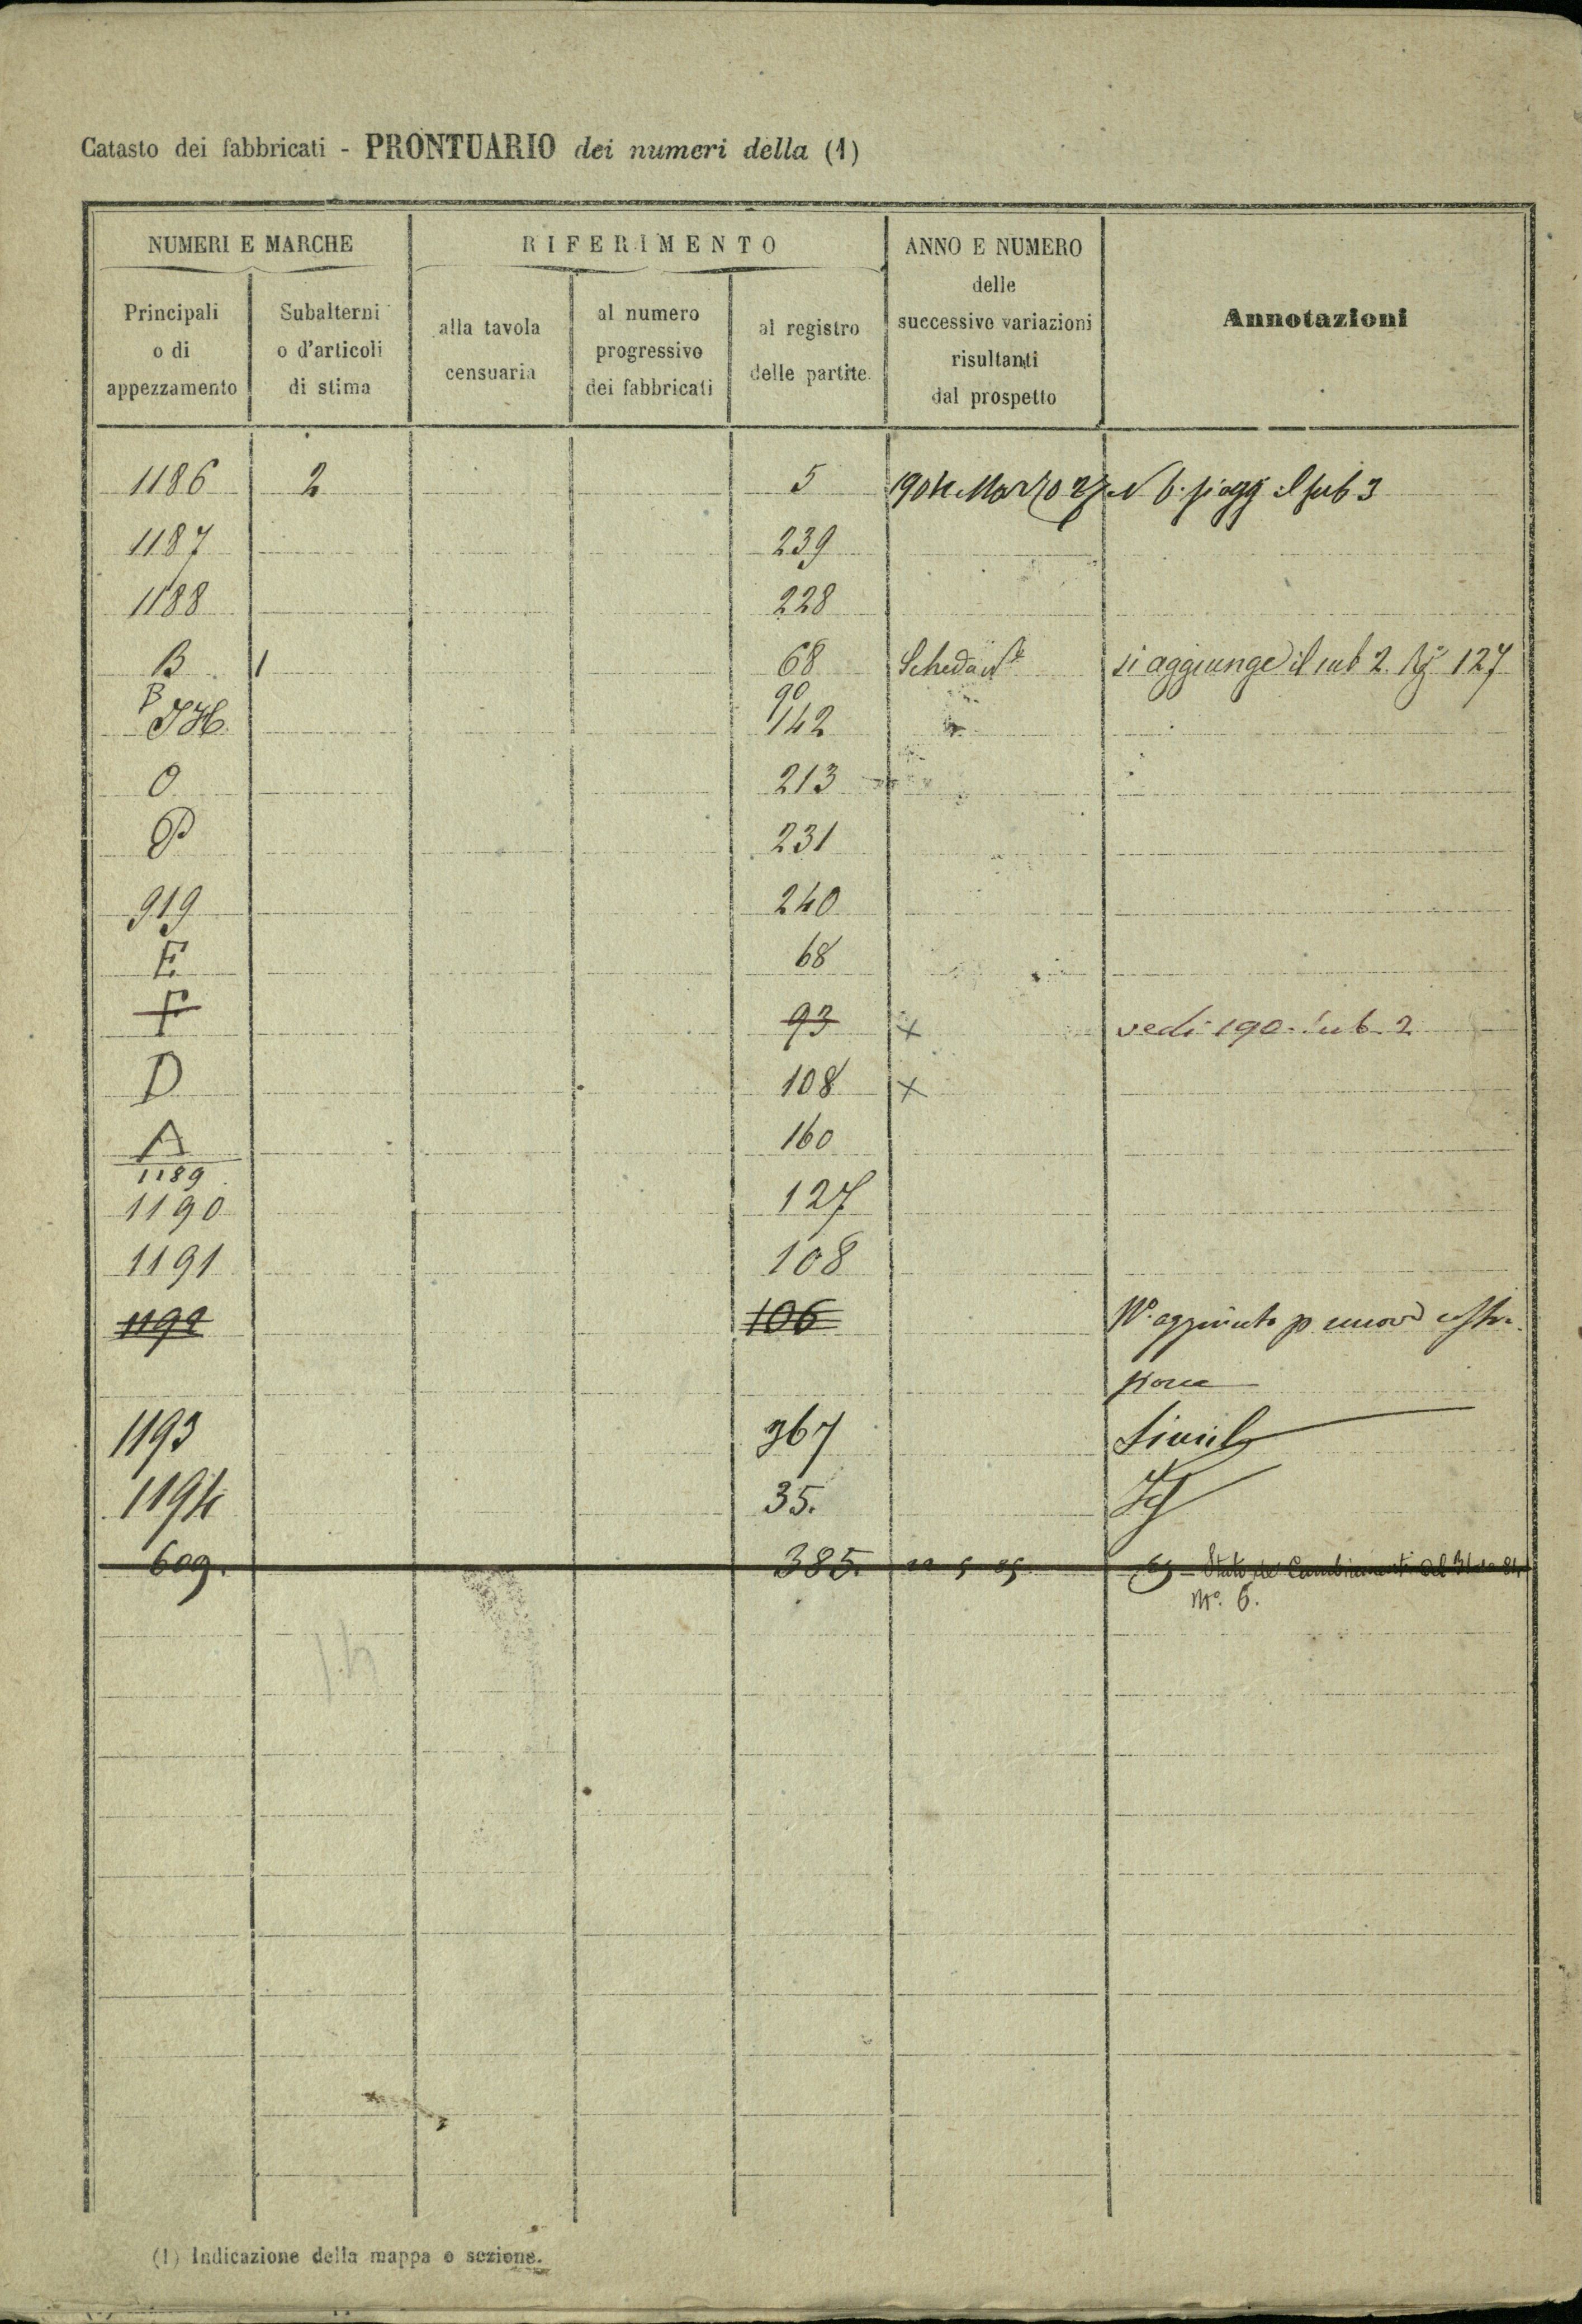 Catasto dei fabbricati - PRONTUARIO dei numeri della (1)
NUMERI E MARCHE
RIFERIMENTO
ANNO E NUMERO
delle
successive variazioni
risultanti
dal prospetto
Annotazioni
Principali
o di
appezzamento
Subalterni
o d'articoli
di stima
alla tavola
censuaria
al numero
progressivo
dei fabbricati
al registro
delle partite
1186 2 5 1904 Marzo 27 N 6. si agg il sub 3
1187 239
1188 228
B 1 68 Scheda si aggiunge il sub 2. 127
B 90
142
O 213
P 231
919 240
E 68
F 93 x vedi 190. sub. 2
D 108 x
A 160
1189
1190 127
1191 108
1192 106 N° aggiunto p nuova costru
zione
1193 367 Simile
1194 35. Id
609. 385. Stato dei Cambiamenti al
N° 6.
(1) Indicazione della mappa o sezione.